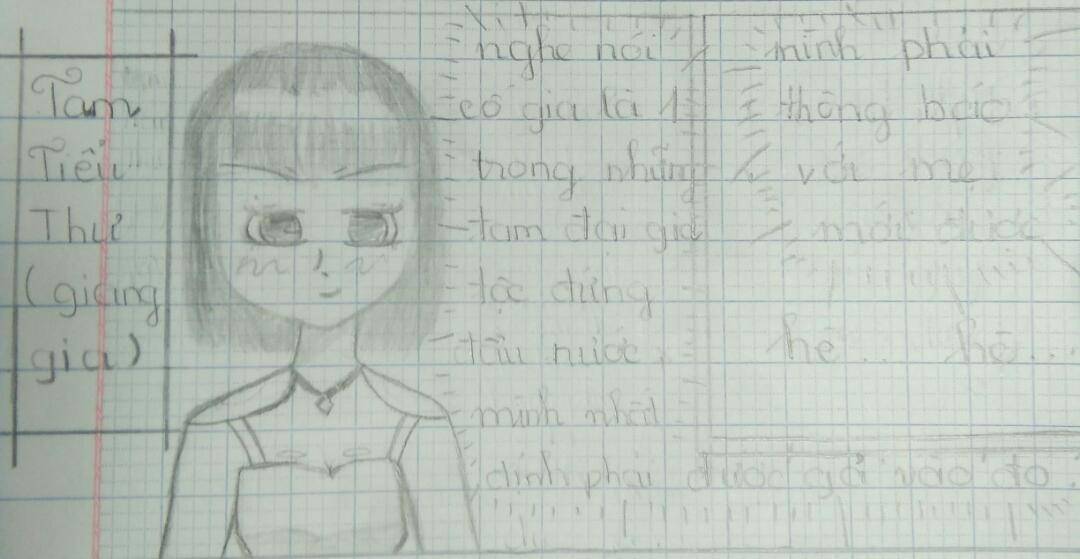 Tam
Tiểu
Thư
(giảng
gia)
nghe nói
cố gia là 1
trong những
tam đại gia
tộc đứng
đầu nước
mình nhất
định phải được gả vào đó
mình phải
thông báo
với mẹ
mới được
hê.. hê...